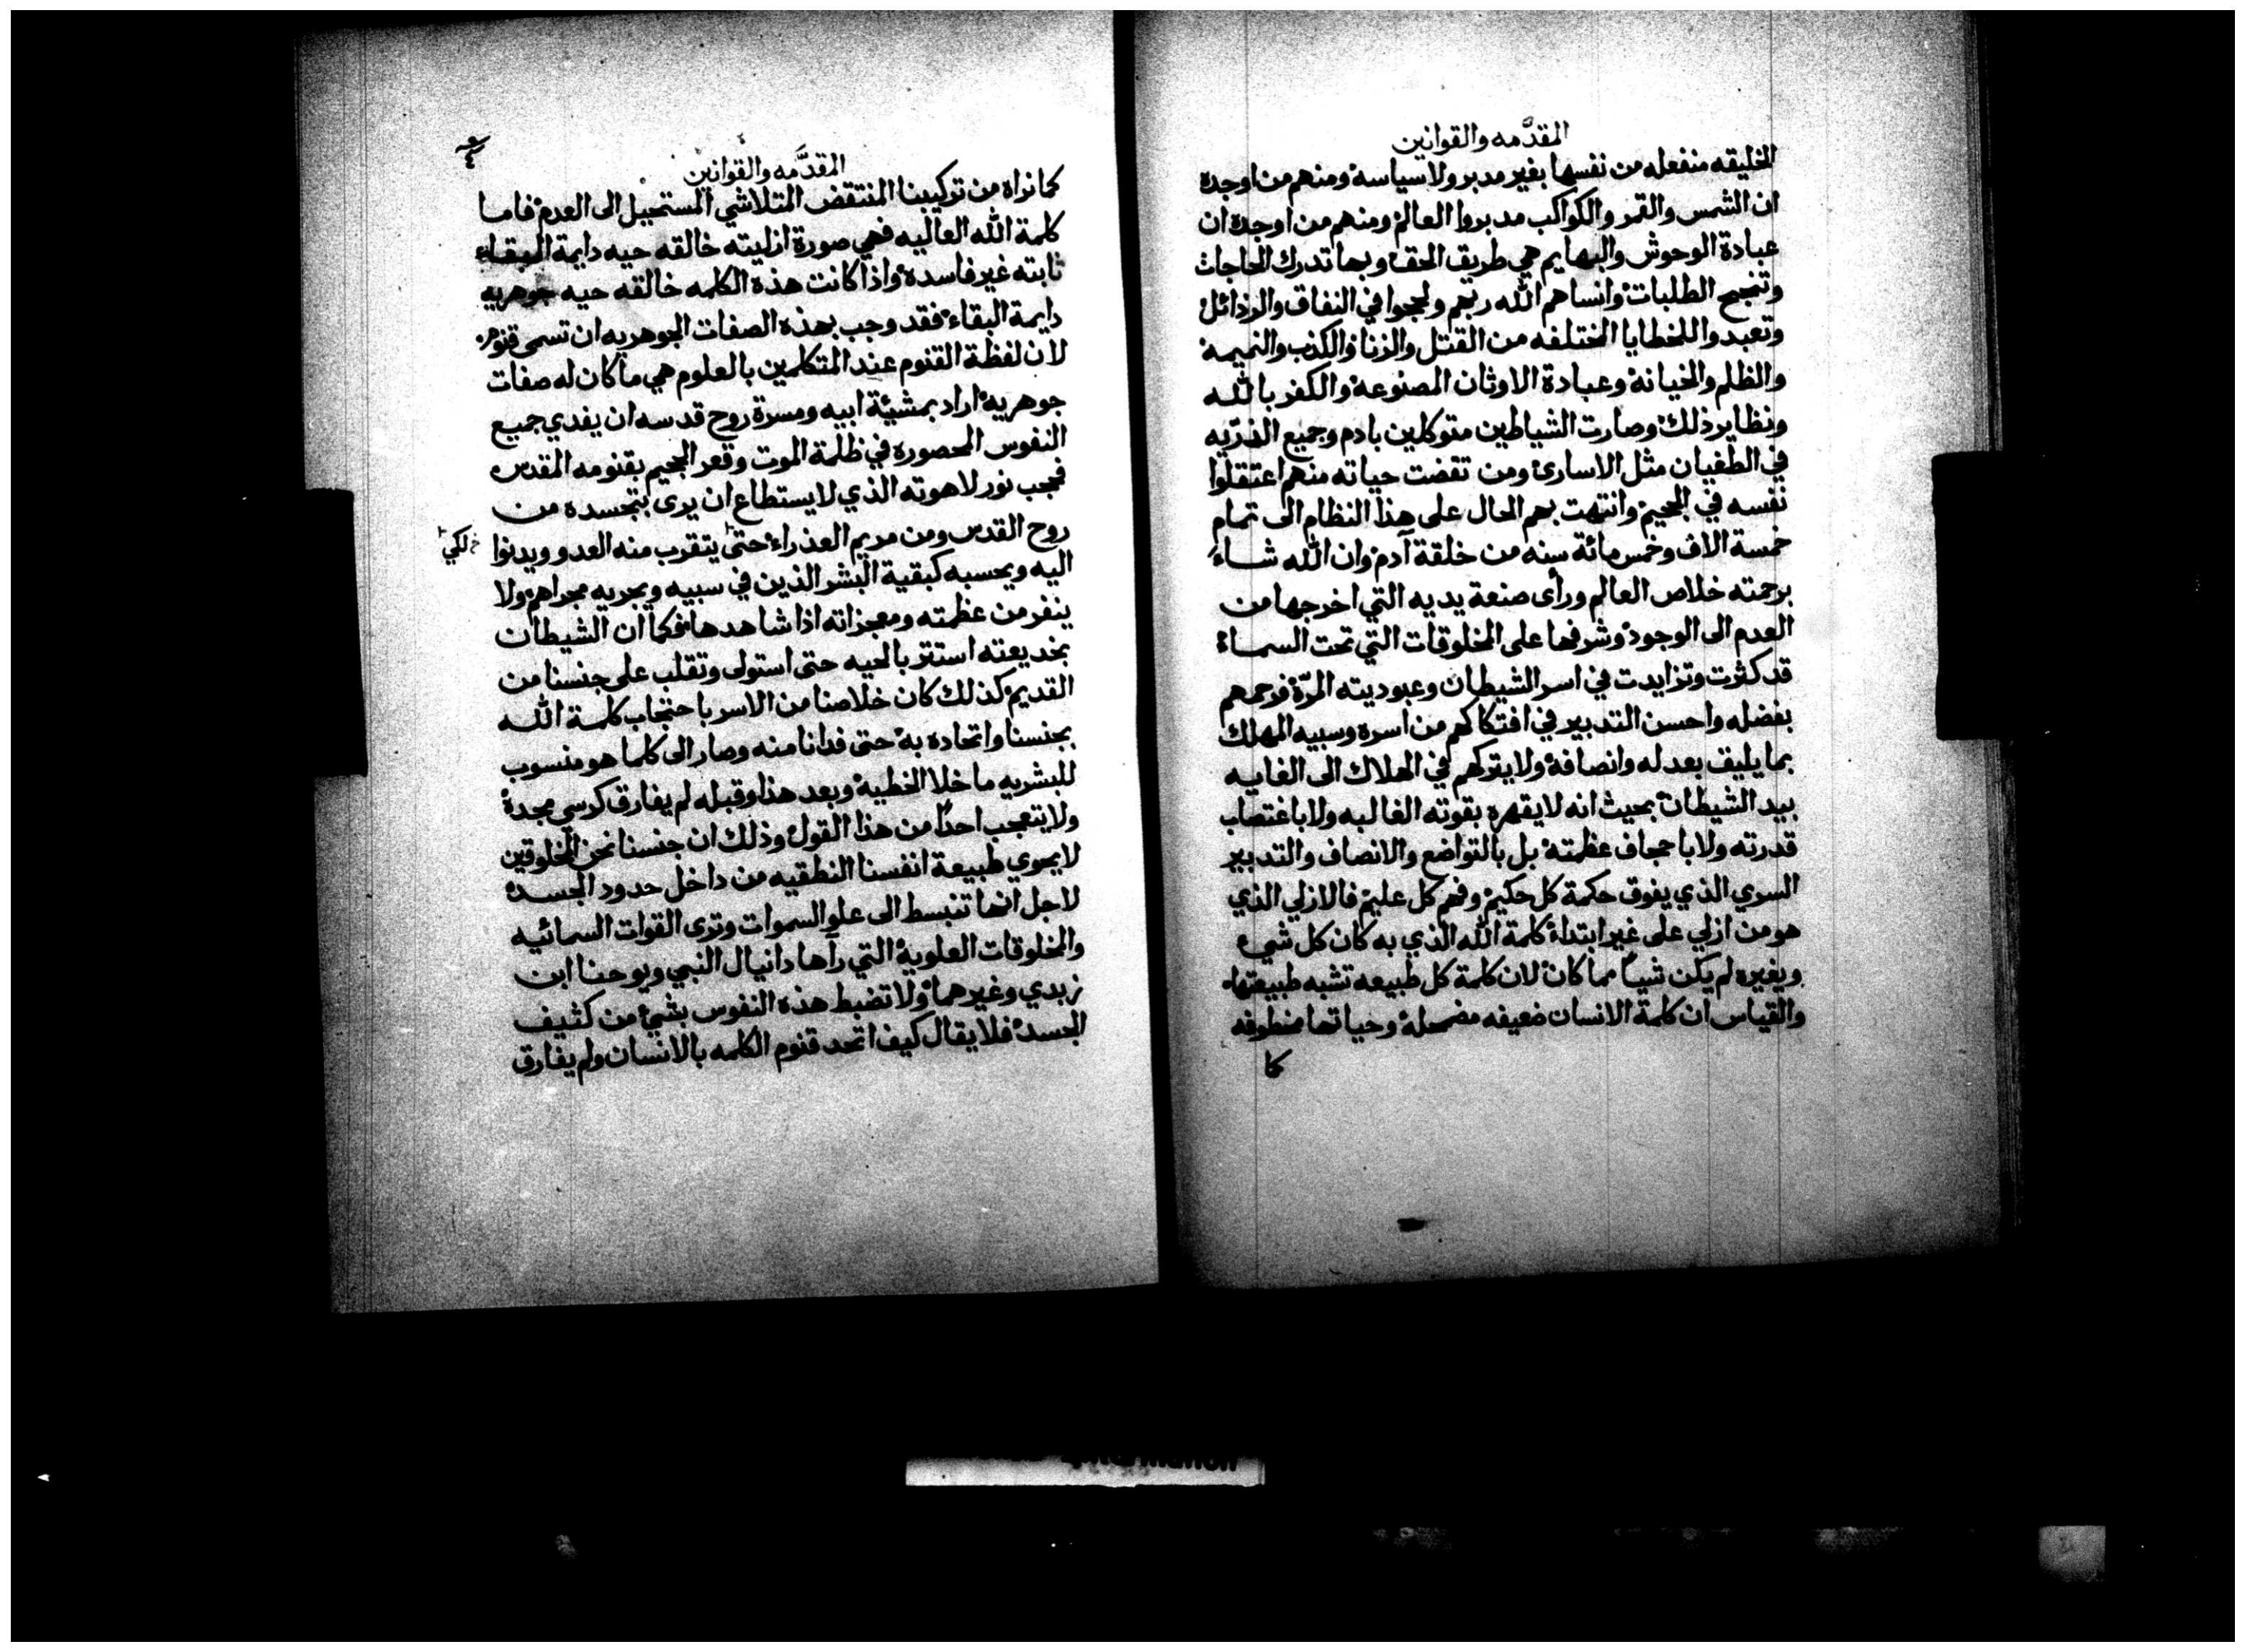 المقدَّمه والقوانين
الخليقه منفعله من نفسها بغير مدبر ولا سياسة ومنهم من اوجده
ان الشمس والقمر والكواكب مدبروا العالم ومنهم من اوجده ان
عبادة الوحوش والبهايم هي طريق الحق وبها تدرك الحاجات
وتنجح الطلبات وانساهم الله ربهم ولججوا في النفاق والرذائل
وتعبدوا للخطايا المختلفه من القتل والزنا والكذب والنميمة
والظلم والخيانة وعبادة الاوثان المصنوعة والكفر بالله
ونظاير ذلك وصارت الشياطين متوكلين بادم وجميع الذرّيه
في الطغيان مثل الاسارى ومن تقضت حياته منهم اعتقلوا
نفسه في الجحيم وانتهت بهم الحال على هذا النظام الى تمام
خمسة الاف وخمس مائة سنه من خلقة آدم وان الله شاء
برحمته خلاص العالم ورأى صنعة يديه التي اخرجها من
العدم الى الوجود وشرفها على المخلوقات التي تحت السماء
قد كثرت وتزايدت في اسر الشيطان وعبوديته المرّة فرحمهم
بفضله واحسن التدبير في افتكاكهم من اسره وسبيه المهلك
بما يليق بعدله وانصافه ولا يتركهم في الهلاك الى الغايه
بيد الشيطان بحيث انه لا يقهره بقوته الغالبه ولا باغتصاب
قدرته ولا باجحاف عظمته بل بالتواضع والانصاف والتدبير
السري الذي يفوق حكمة كل حكيم وفهم كل عليم فالازلي الذي
هو من ازلي على غير ابتداء كلمة الله الذي به كان كل شيء
وبغيره لم يكن شيئاً مما كان لان كلمة كل طبيعه تشبه طبيعتها
والقياس ان كلمة الانسان ضعيفه مضمحلة وحياتها
كما
المقدَّمه والقوانين
كما نراه من تركيبنا المنتقض المتلاشي المستحيل الى العدم فاما
كلمة الله العاليه فهي صورة ازليته خالقه حيه دايمة البقاء
ثابته غير فاسده واذا كانت هذه الكلمه خالقه حيه جوهريه
دايمة البقاء فقد وجب بهذه الصفات الجوهريه ان تسمى قنوم
لان لفظة القنوم عند المتكلمين بالعلوم هي ما كان له صفات
جوهرية اراد بمشيئة ابيه ومسرة روح قدسه ان يفدي جميع
النفوس المحصوره في ظلمة الموت وقعر الجحيم بقنومه المقدس
فحجب نور لاهوته الذي لا يستطاع ان يرى بتجسده من
روح القدس ومن مريم العذراء حتى يتقرب منه العدو ويدنوا
لكي
اليه ويحسبه كبقية البشر الذين في سبيه ويجريه مجراهم ولا
ينفر من عظمته ومعجزاته اذا شاهدها فكما ان الشيطان
بخديعته استتر بالحيه حتى استولى وتقلب على جنسنا من
القديم كذلك كان خلاصنا من الاسر باحتجاب كلمة الله
بجنسنا واتحاده به حتى فدانا منه وصار الى كلما هو منسوب
للبشريه ما خلا الخطية وبعد هذا وقبله لم يفارق كرسي مجدة
ولا يتعجب احداً من هذا القول وذلك ان جنسنا نحن المخلوقين
لا يحوي طبيعة انفسنا النطقيه من داخل حدود الجسد
لاجل انها تنبسط الى علو السموات وترى القوات السمائيه
والمخلوقات العلوية التي رآها دانيال النبي ويوحنا ابن
زبدي وغيرهما ولا تضبط هذه النفوس بشئ من كثيف
الجسد فلا يقال كيف اتحد قنوم الكلمه بالانسان ولم يفارق